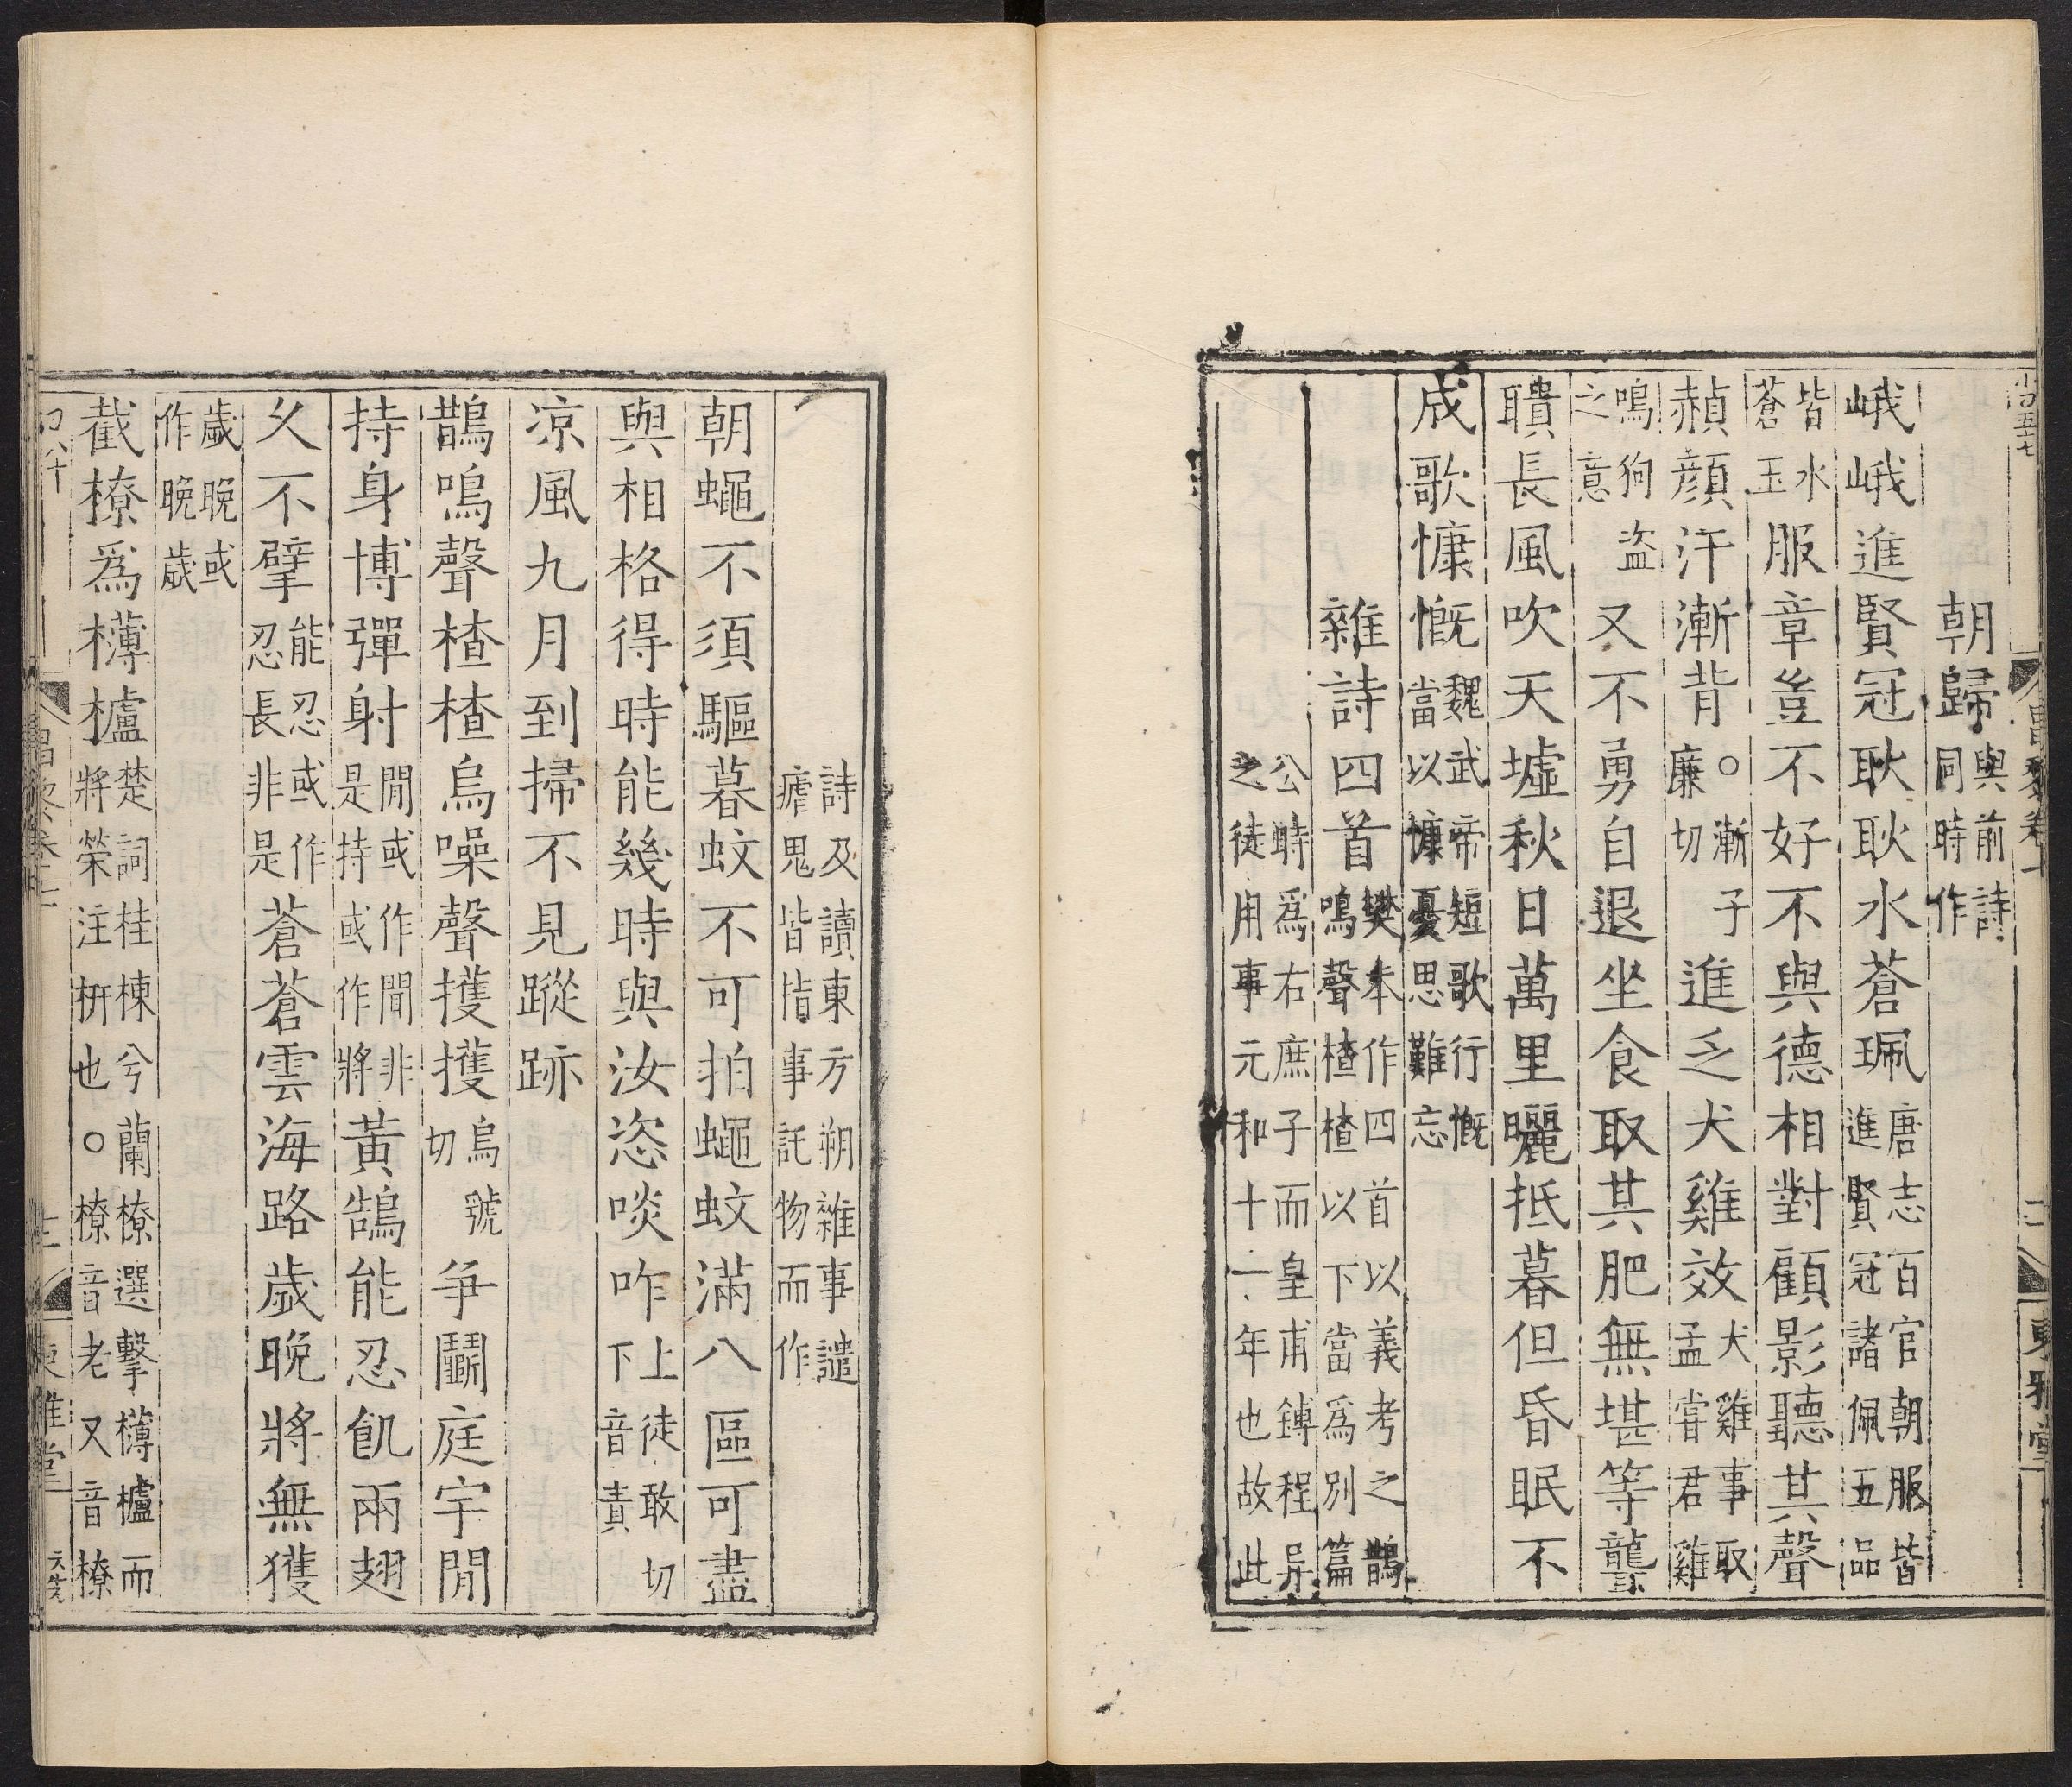 朝歸與前詩同時作
峨峨進賢冠耿耿水蒼珮唐志百官朝服皆進賢冠諸佩五品
皆水蒼玉服章豈不好不與德相對顧影聽其聲
赬顏汗漸背○漸子廉切進乏犬雞效犬雞事取孟嘗君雞
鳴狗盜之意又不勇自退坐食取其肥無堪等聾
聵長風吹天墟秋日萬里曬抵暮但昏眠不
成歌慷慨魏武帝短歌行慨當以慷憂思難忘
雜詩四首樊本作四首以義考之鵲鳴聲楂楂以下當為別篇
公時爲右庶子而皇甫鎛程异之徒用事元和十一年也故此
詩及讀東方朔雜事譴瘧鬼皆指事託物而作
朝蠅不須驅暮蚊不可拍蠅蚊滿八區可盡
與相格得時能幾時與汝恣啖咋上徒敢切下音責
凉風九月到掃不見蹤跡
鵲鳴聲楂楂烏噪聲擭擭烏號切爭鬭庭宇閒
持身博彈射閒或作聞非是持或作將黃鵠能忍飢兩翅
久不擘能忍或作忍長非是蒼蒼雲海路歲晚將無獲
歲晚或作晚歲
截橑爲欂櫨楚詞桂棟兮蘭橑選擊欂櫨而將榮注枅也○橑音老又音橑
東雅堂